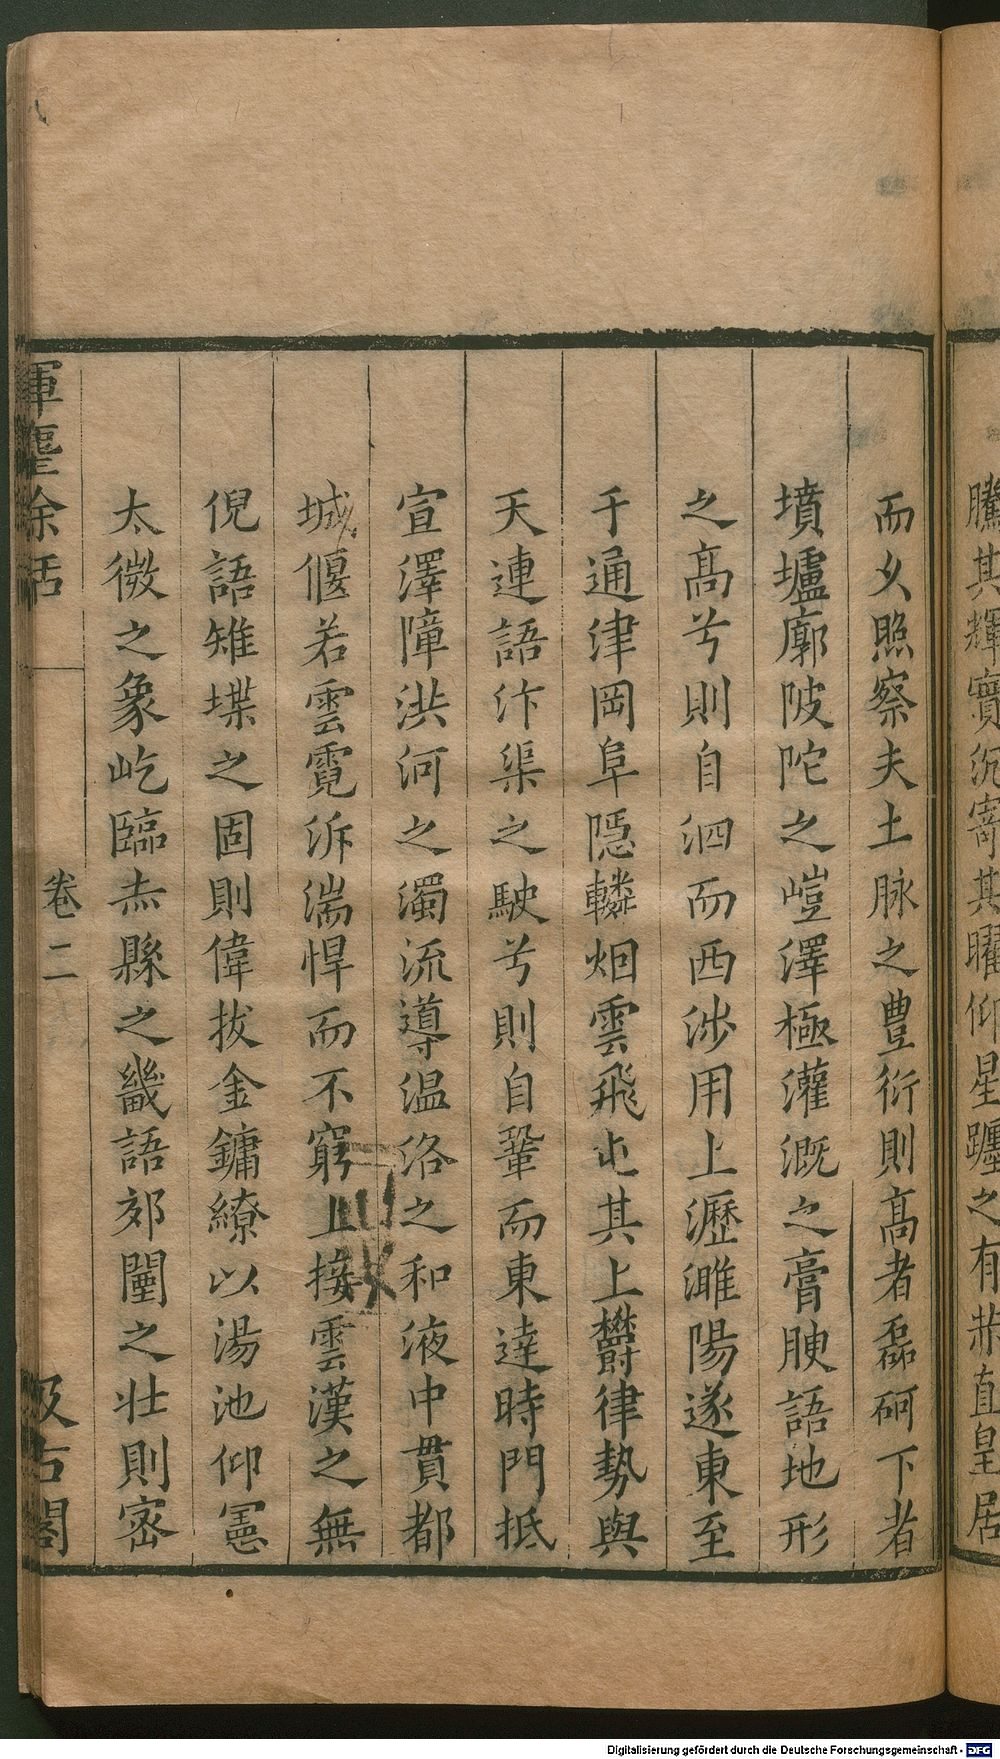 騰其輝寶沉寄其曜仰星躔之有非直皇居
而久照察夫土脉之豊衍則髙者磊砢下者
墳壚廓陂陀之嵦澤極灌溉之膏腴語地形
之髙兮則自泗而西涉用上瀝濉陽遂東至
于通津岡阜隠轔烟雲飛屯其上欝律勢與
天連語汴渠之駛兮則自鞏而東達時門抵
宣澤障洪河之濁流導温洛之和液中貫都
城偃若雲霓泝湍悍而不窮上接雲漢之無
倪語雉堞之固則偉拔金鏞繚以湯池仰憲
太微之象屹臨赤縣之畿語郊闉之壮則宻
揮麈余話
卷二
汲古閣
Digitalisierung gefördert durch die Deutsche Forschungsgemeinschaft - DFG